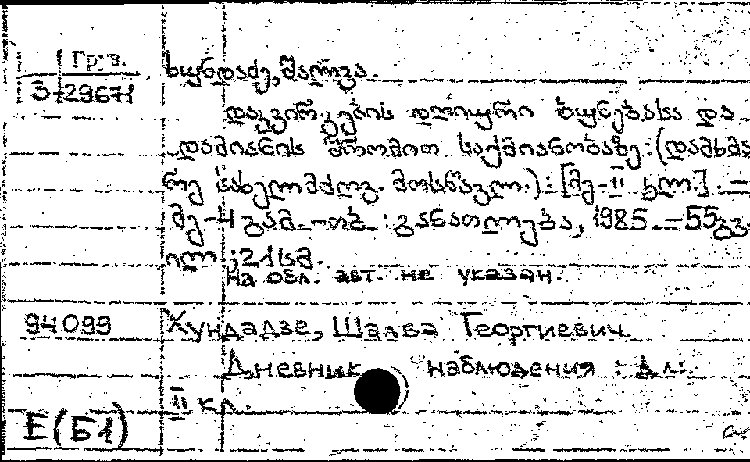 Груз.
3-29671
ხუნდაძე, შალვა.
დაკვირვების დღიური ბუნებასა და
დამიანის შრომით საქმიანობაზე: (დამხმა
რე სახელმძღვ. მოსწავლ.): [მე-II კლ.]. —
მე-4 გამ.-თბ.: განათლება, 1985. — 55გვ.
ილ.; 21სმ.
На обл. авт. не указан.
94099 Хундадзе, Шалва Георгиевич.
Дневник наблюдения: Дл:
II кл.
Е(Б1)